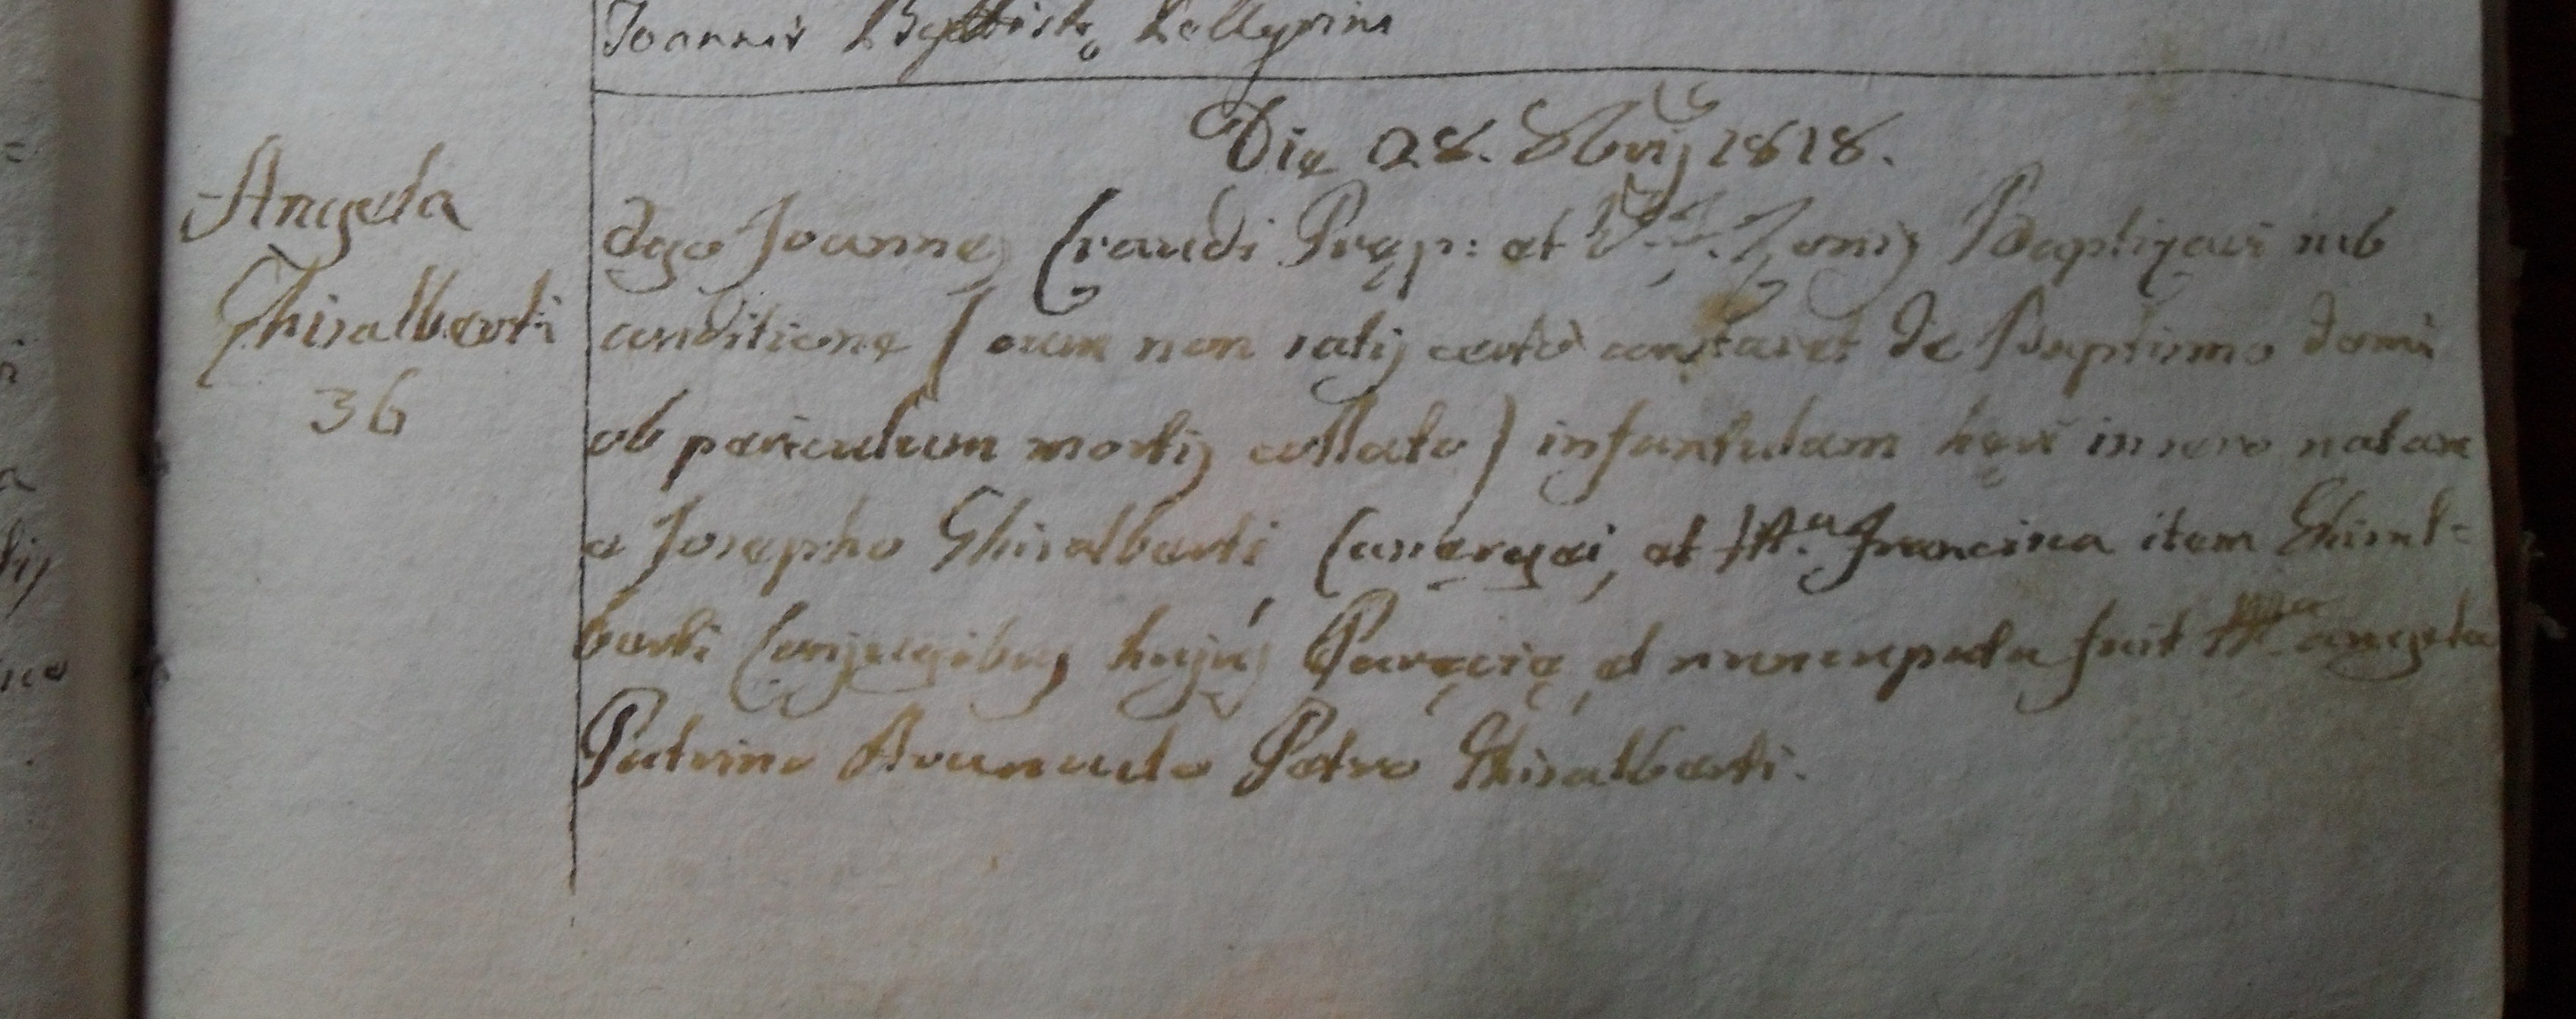 Joannis Baptistę Pellegrini
Die 28. 8bris 1818.
Angela
Ghisalberti
36
Ego Joannes Craudi Pręp: et V. F. Zonij Baptizavi sub
conditione (cum non satis certò constaret de Baptismo domi
ob periculum mortis collato) infantulam heri in sero natam
a Josepho Ghisalberti et M.a Francisca item Ghisal-
berti Conjugibus hujus Paręcię, et nuncupata fuit M.a Angela
Patrino Petro Ghisalberti.